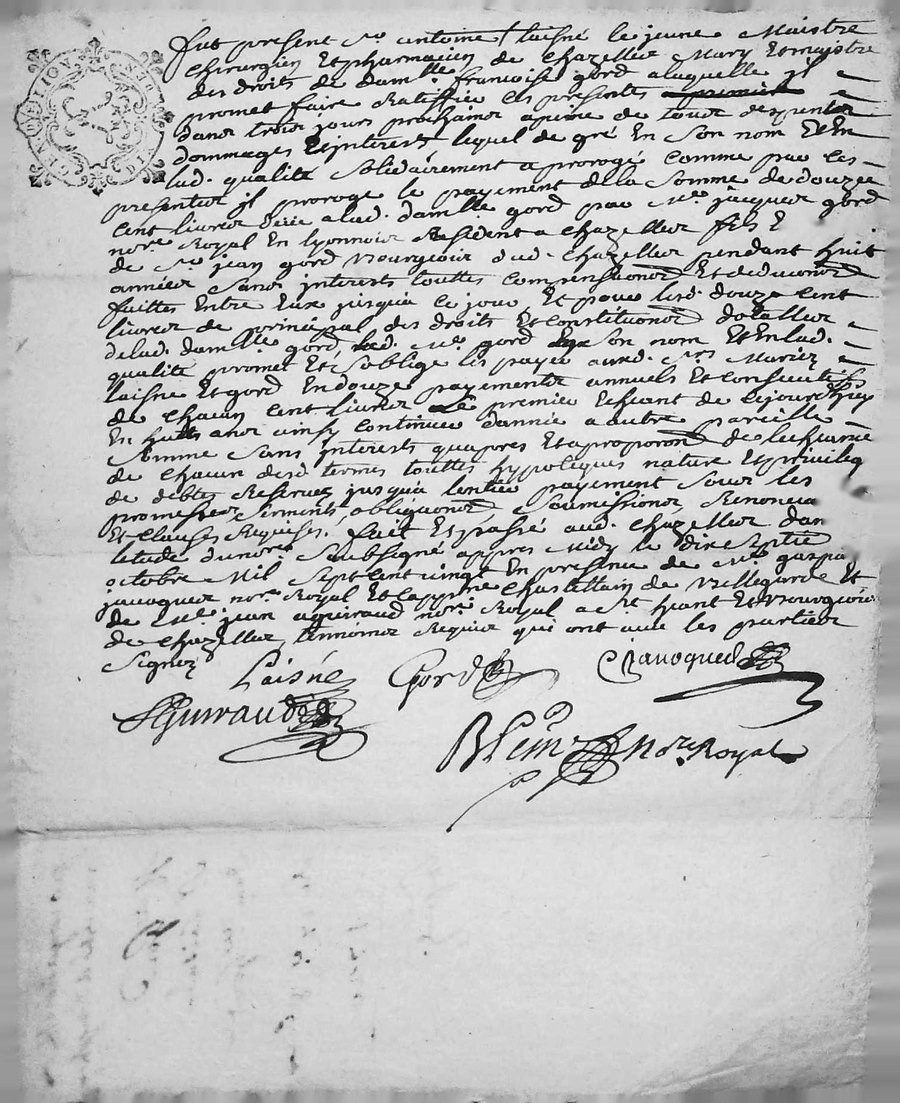 fut présent sr antoine laisné le jeune Maistre
chirurgien Et pharmacien de chazelles Mary Et maystre
des droits de damlle francoise gord a laquelle jl
promet faire Ratiffier les presentes
dans trois jours prochains a peine de tous despents
dommages Et jnterests lequel de gré En Son nom Et En
lad. qualité Solidairement a prorogé comme par ces
presentes jl proroge le payement de la Somme de douze
cent livres deüe a lad. damlle gord par Me jacques gord
nore Royal En lyonnois Resident a chazelles fils E
de Sr jean gord Bourgeois dud. chazelles pendant huit
années Sans jnterests touttes compensations Et deductions
faittes Entre Eux jusqu'a ce jour Et pour lesd. douze cent
livres de principal des droits Et constitutions dotalles
de lad. damlle gord, led. Me gord En Son nom Et En lad.
qualité promet Et s'oblige les payer ausd. Mariez
laisne Et gord En douze payements annuels Et consecutifs
de chacun cent livres Le premier Escheant de cejourdhuy
En huits ans ainsy continuer d'année a autre pareille
Somme Sans jnterests qu'apres Et a proportion de l'echeance
de chacun desd. termes touttes hypoteques nature Et privileg
de debtes Reservez jusqu'a l'entier payement Sous les
promesses, Serments, obligations Soumissions Renoncia
Et clauses Requises. fait Et passé aud. chazelles dan
letude du nore Soubsigné appres Midy le dix Septie
octobre Mil Sept cent vingt En presence de Me gaspa
janoquer nore Royal Et cappne chastellain de Villegarde Et
de Me jean aguiraud nore Royal a St heant Et Bourgeois
de chazelles temoins Requis qui ont avec les parties
Signez
Laisné Gord Cjanoquer
Aguiraud
nore Royal